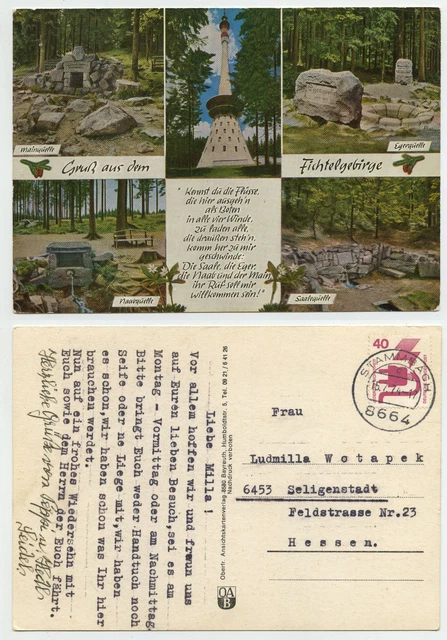 Mainquelle
Egerquelle
Gruß aus dem
Fichtelgebirge
"Kennst du die Flüsse,
die hier ausgeh'n
als Boten
in alle vier Winde,
zu laden alle,
die draußen steh'n,
komm her zu mir
geschwinde:
Die Saale, die Eger,
die Naab und der Main
ihr Ruf soll mir
willkommen sein!"
Naabquelle
Saalequelle
Liebe Milla !
Vor allem hoffen wir und freun uns
auf Euren lieben Besuch,sei es am
Montag - Vormittag oder am Nachmittag.
Bitte bringt Euch weder Handtuch noch
Seife oder ne Liege mit,wir haben
es schon,wir haben schon was Ihr hier
brauchen werdet.
Nun auf ein frohes Wiedersehn mit
Euch sowie dem Herrn der Euch fährt.
Herzliche Grüße von
Seidel
Oberfr. Ansichtskartenverlag 8580 Bayreuth, Humboldtstr. 5, Tel. 09 21 / 6 41 26
Nachdruck verboten
OA
B
40
STAMMBACH
8664
Frau
Ludmilla Wotapek
6453 Seligenstadt
Feldstrasse Nr.23
Hessen.